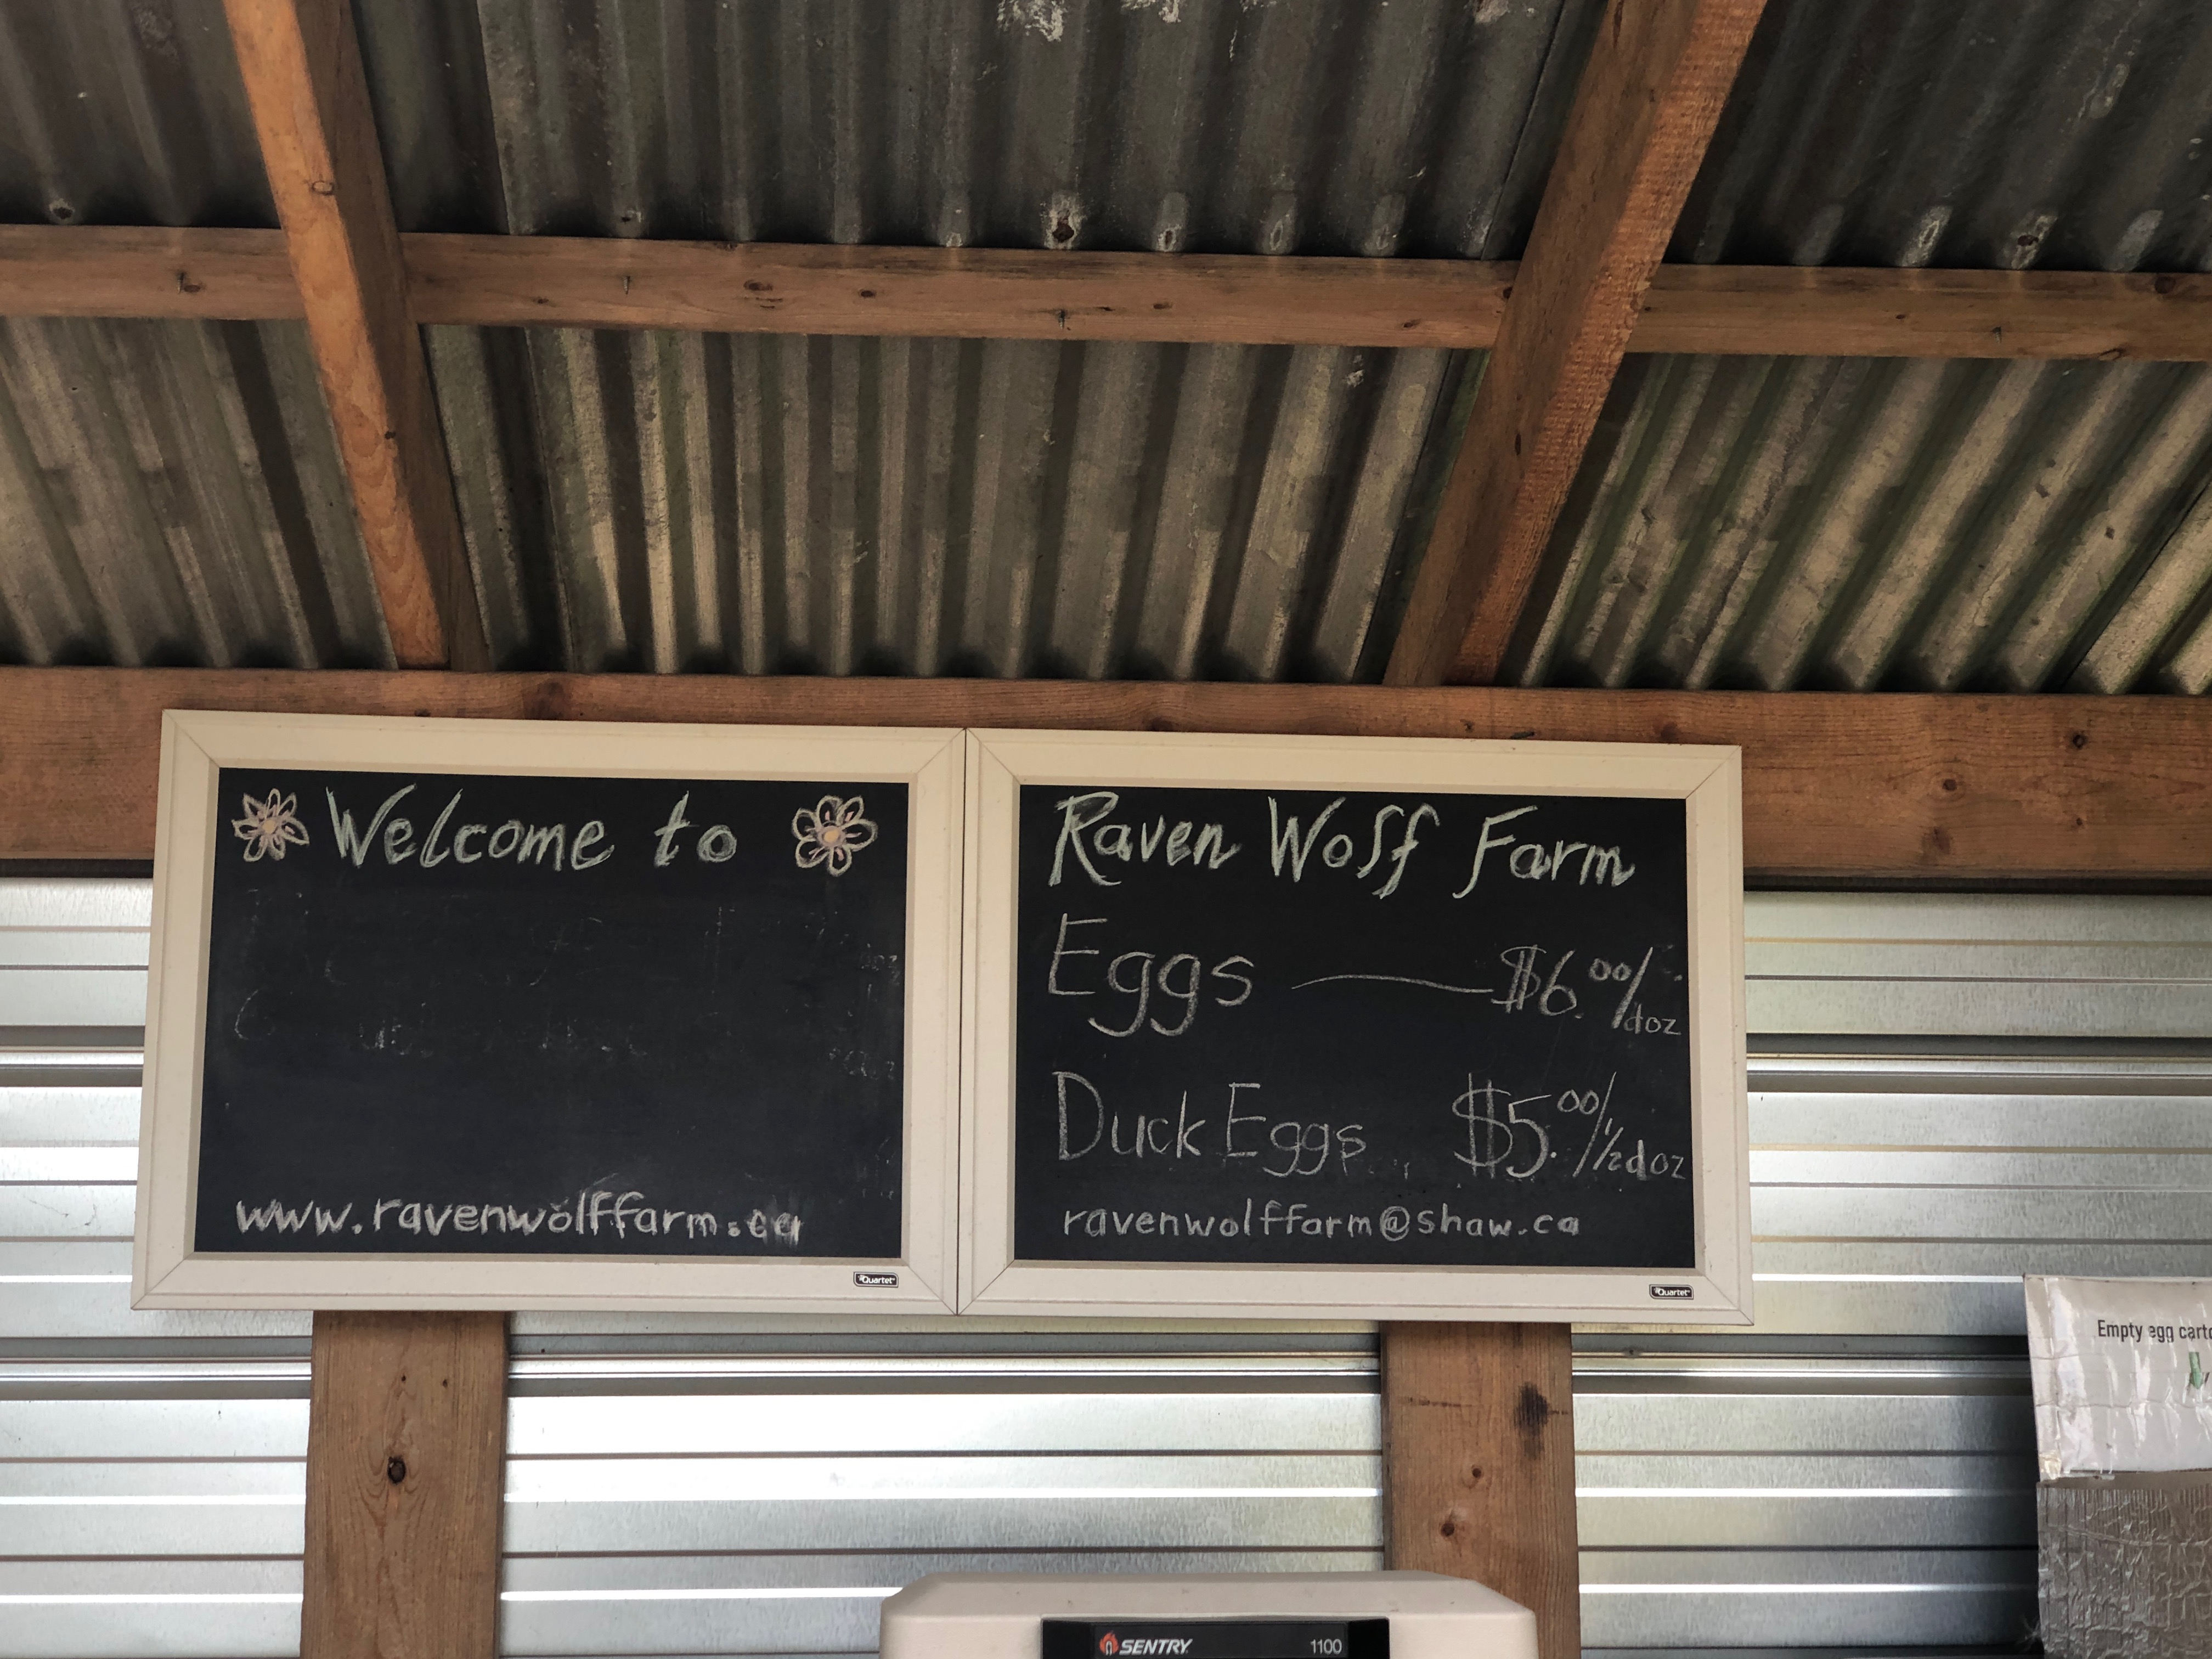 Welcome to
www.ravenwolffarm.ca
Quartet
Raven Wolf Farm
Eggs — $6.00/doz
Duck Eggs $5.00/½doz
ravenwolffarm@shaw.ca
Quartet
Empty egg carto
SENTRY 1100